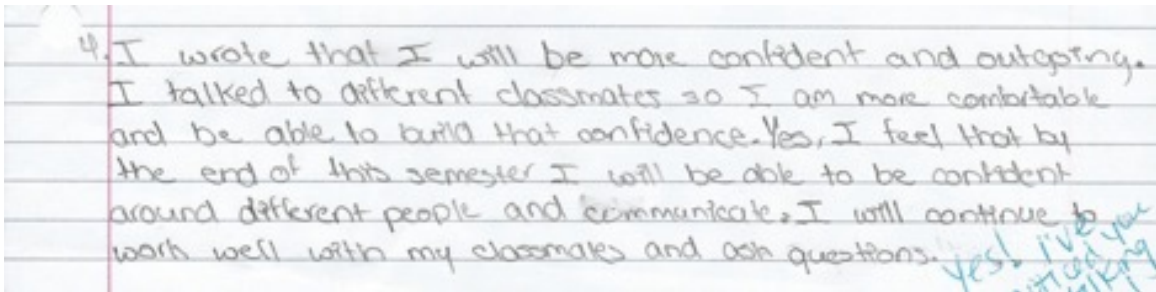 4. I wrote that I will be more confident and outgoing.
I talked to different classmates so I am more comfortable
and be able to build that confidence. Yes, I feel that by
the end of this semester I will be able to be confident
around different people and communicate. I will continue to
work well with my classmates and ask questions.
Yes! I've
noticed you
talking